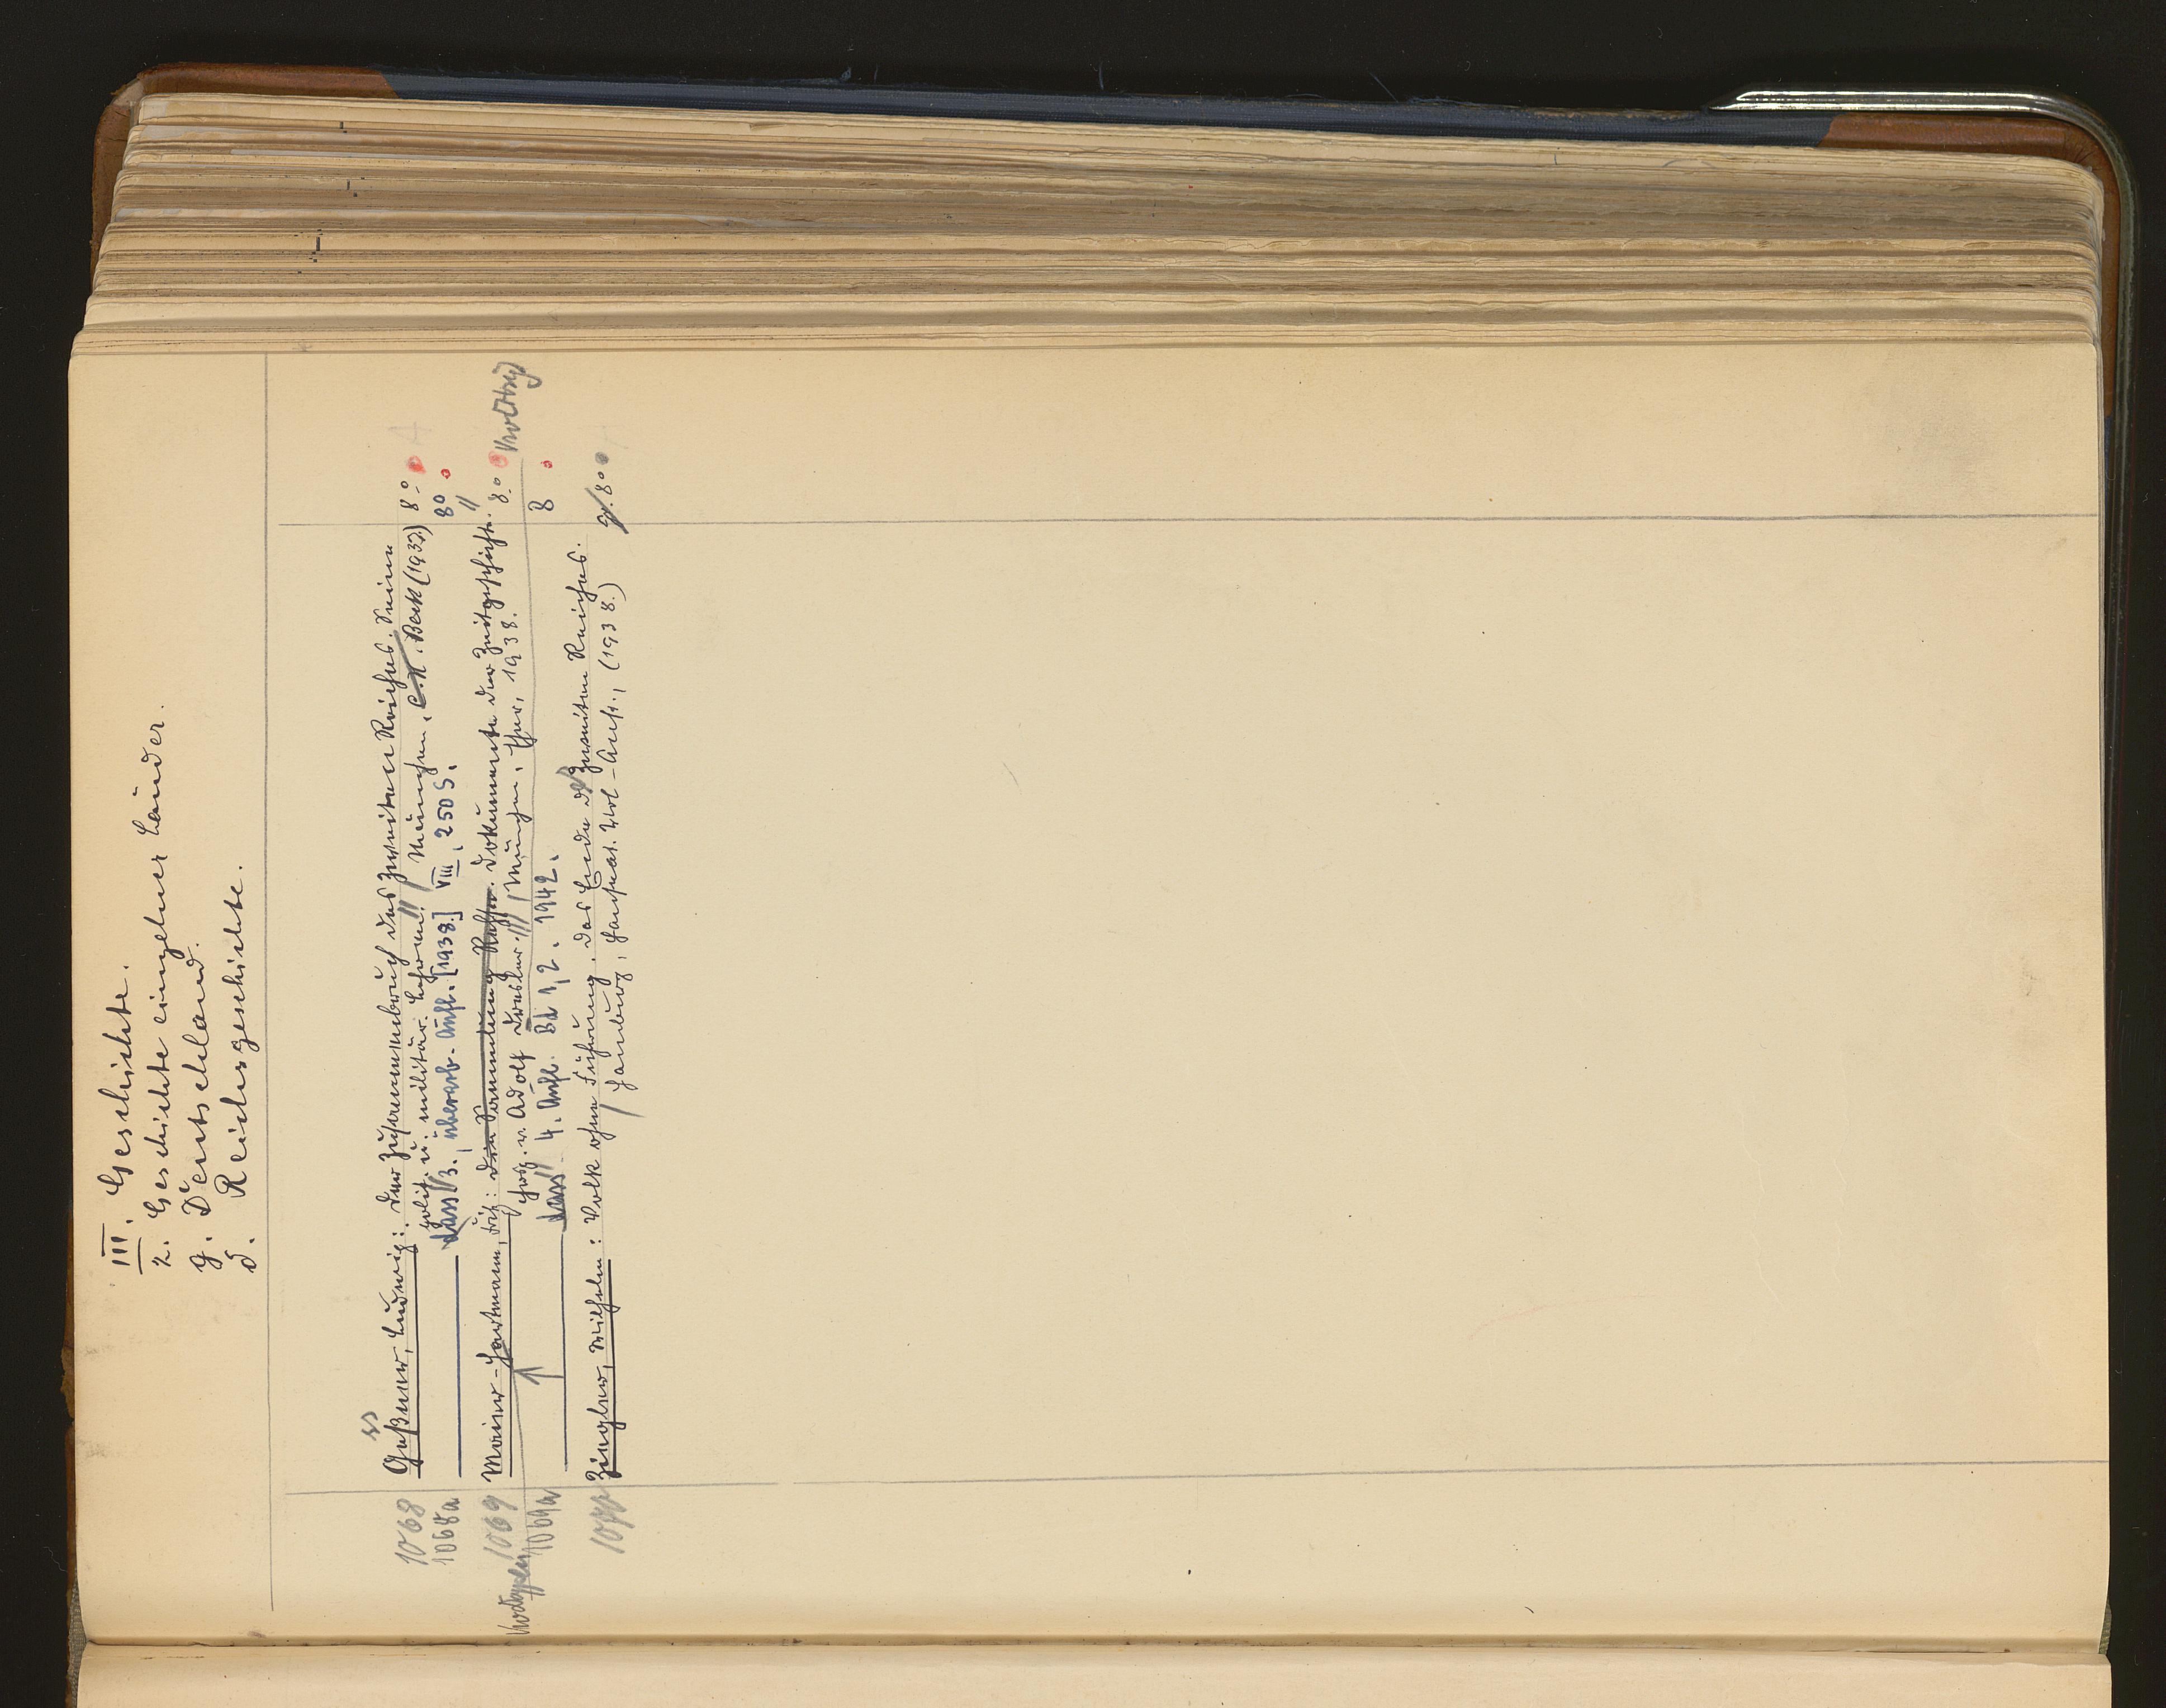 III. Geschichte.
2. Geschichte einzelner Länder.
g. Deutschland.
d. Reichsgeschichte.
ss
1068 Geßner, Ludwig: Der Zusammenbruch des Zweiten Reiches. Seine 8°
polit. u. militär. Lehren. // München, C. H. Beck (1937)
1068a ——— Dass. // 3. überarb. Aufl. [1938.] VIII, 250 S. 8°
1069 Maier-Hartmann, Fritz: Die Sammlung Rehse. Dokumente der Zeitgeschichte. 8°
Hrsg. v. Adolf Dresler. // München, Eher, 1938.
1069a ——— Dass. // 4. Aufl. Bd 1, 2. 1942. 8
1070 Ziegler, Wilhelm: Volk ohne Führung. Das Ende des Zweiten Reiches.
/ Hamburg, Hanseat. Verl.-Anst., (1938.) gr. 8°